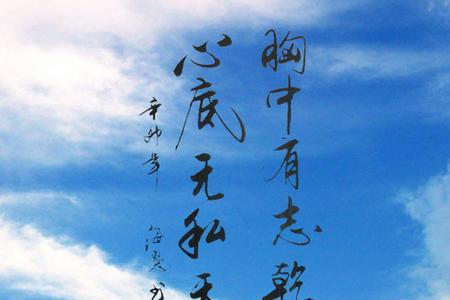 胸中有志乾
心底无私天
辛卯年 海
书